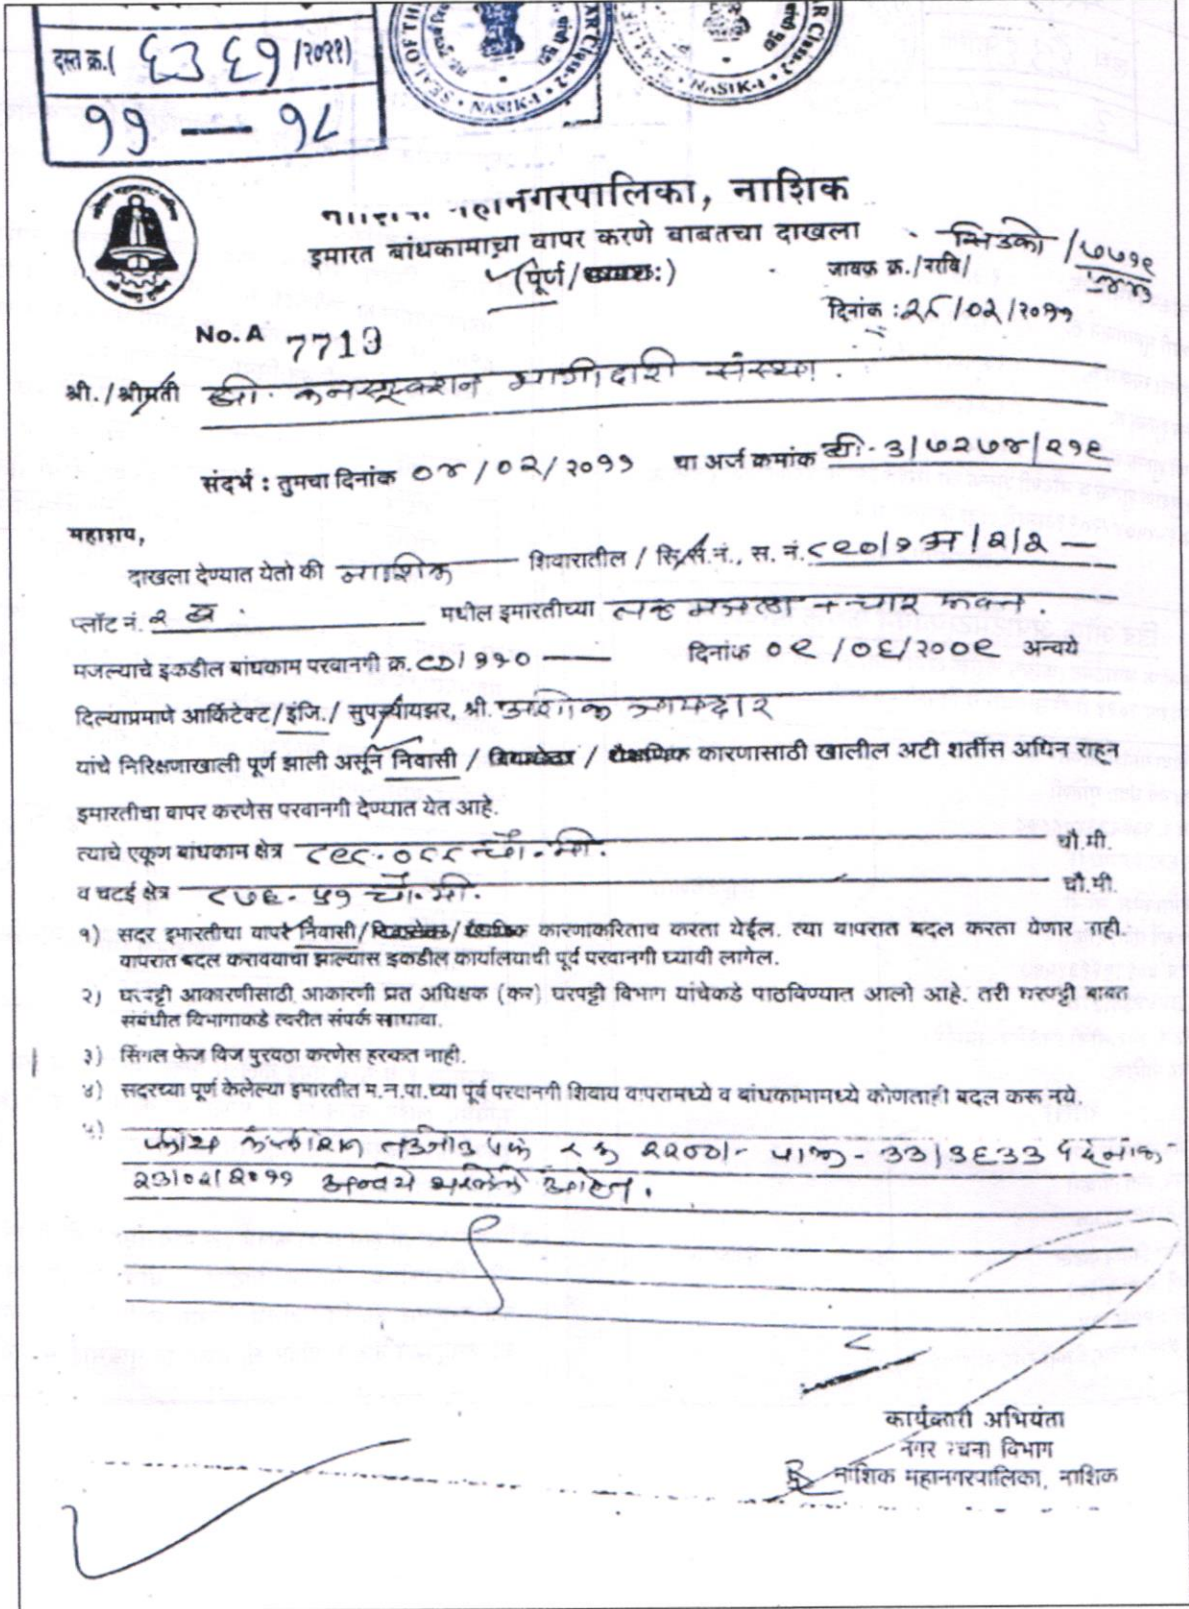 दस्त क्र.( ६३६१ /२०११)
११ — १८
SEAL OF TH
NASIK-1
AR Class-2
NASIK-1
AR Class-2
महानगरपालिका, नाशिक
इमारत बांधकामाचा वापर करणे बाबतचा दाखला
(पूर्ण/
सिडको /
जावक क्र./नरवि/
दिनांक : २८/०२/२०११
No. A 7713
श्री./श्रीमती श्री. कनस्ट्रक्शन भागीदारी संस्था.
संदर्भ : तुमचा दिनांक ०४/०२/२०११ चा अर्ज क्रमांक सी-३/७२७४/२१९
महाशय,
दाखला देण्यात येतो की नाशिक — शिवारातील / सि.स.नं., स. नं. ८९०/१अ/२/२ —
प्लॉट नं. २ ब मधील इमारतीच्या तळ मजला + चार मजले.
मजल्याचे इकडील बांधकाम परवानगी क्र. CD/११० — दिनांक ०९/०६/२००९ अन्वये
दिल्याप्रमाणे आर्किटेक्ट/इंजि./ सुपरवायझर, श्री.
यांचे निरिक्षणाखाली पूर्ण झाली असून निवासी / निवासेतर / शैक्षणिक कारणासाठी खालील अटी शर्तीस अधिन राहून
इमारतीचा वापर करणेस परवानगी देण्यात येत आहे.
त्याचे एकूण बांधकाम क्षेत्र ८९८.०८८ चौ.मी. चौ.मी.
व चटई क्षेत्र ८७६.५१ चौ.मी. चौ.मी.
१) सदर इमारतीचा वापर निवासी/निवासेतर/शैक्षणिक कारणाकरिताच करता येईल. त्या वापरात बदल करता येणार नाही.
वापरात बदल करावयाचा झाल्यास इकडील कार्यालयाची पूर्व परवानगी घ्यावी लागेल.
२) घरपट्टी आकारणीसाठी आकारणी प्रत अधिक्षक (कर) घरपट्टी विभाग यांचेकडे पाठविण्यात आलो आहे. तरी घरपट्टी बाबत
संबंधीत विभागाकडे त्वरीत संपर्क साधावा.
३) सिंगल फेज विज पुरवठा करणेस हरकत नाही.
४) सदरच्या पूर्ण केलेल्या इमारतीत म.न.पा.च्या पूर्व परवानगी शिवाय वापरामध्ये व बांधकामामध्ये कोणताही बदल करू नये.
५) २२००/- पा.क्र- ३३/३६३३ दिनांक-
२३/०२/२०११ अन्वये भरलेले आहेत.
कार्यकारी अभियंता
नगर रचना विभाग
नाशिक महानगरपालिका, नाशिक